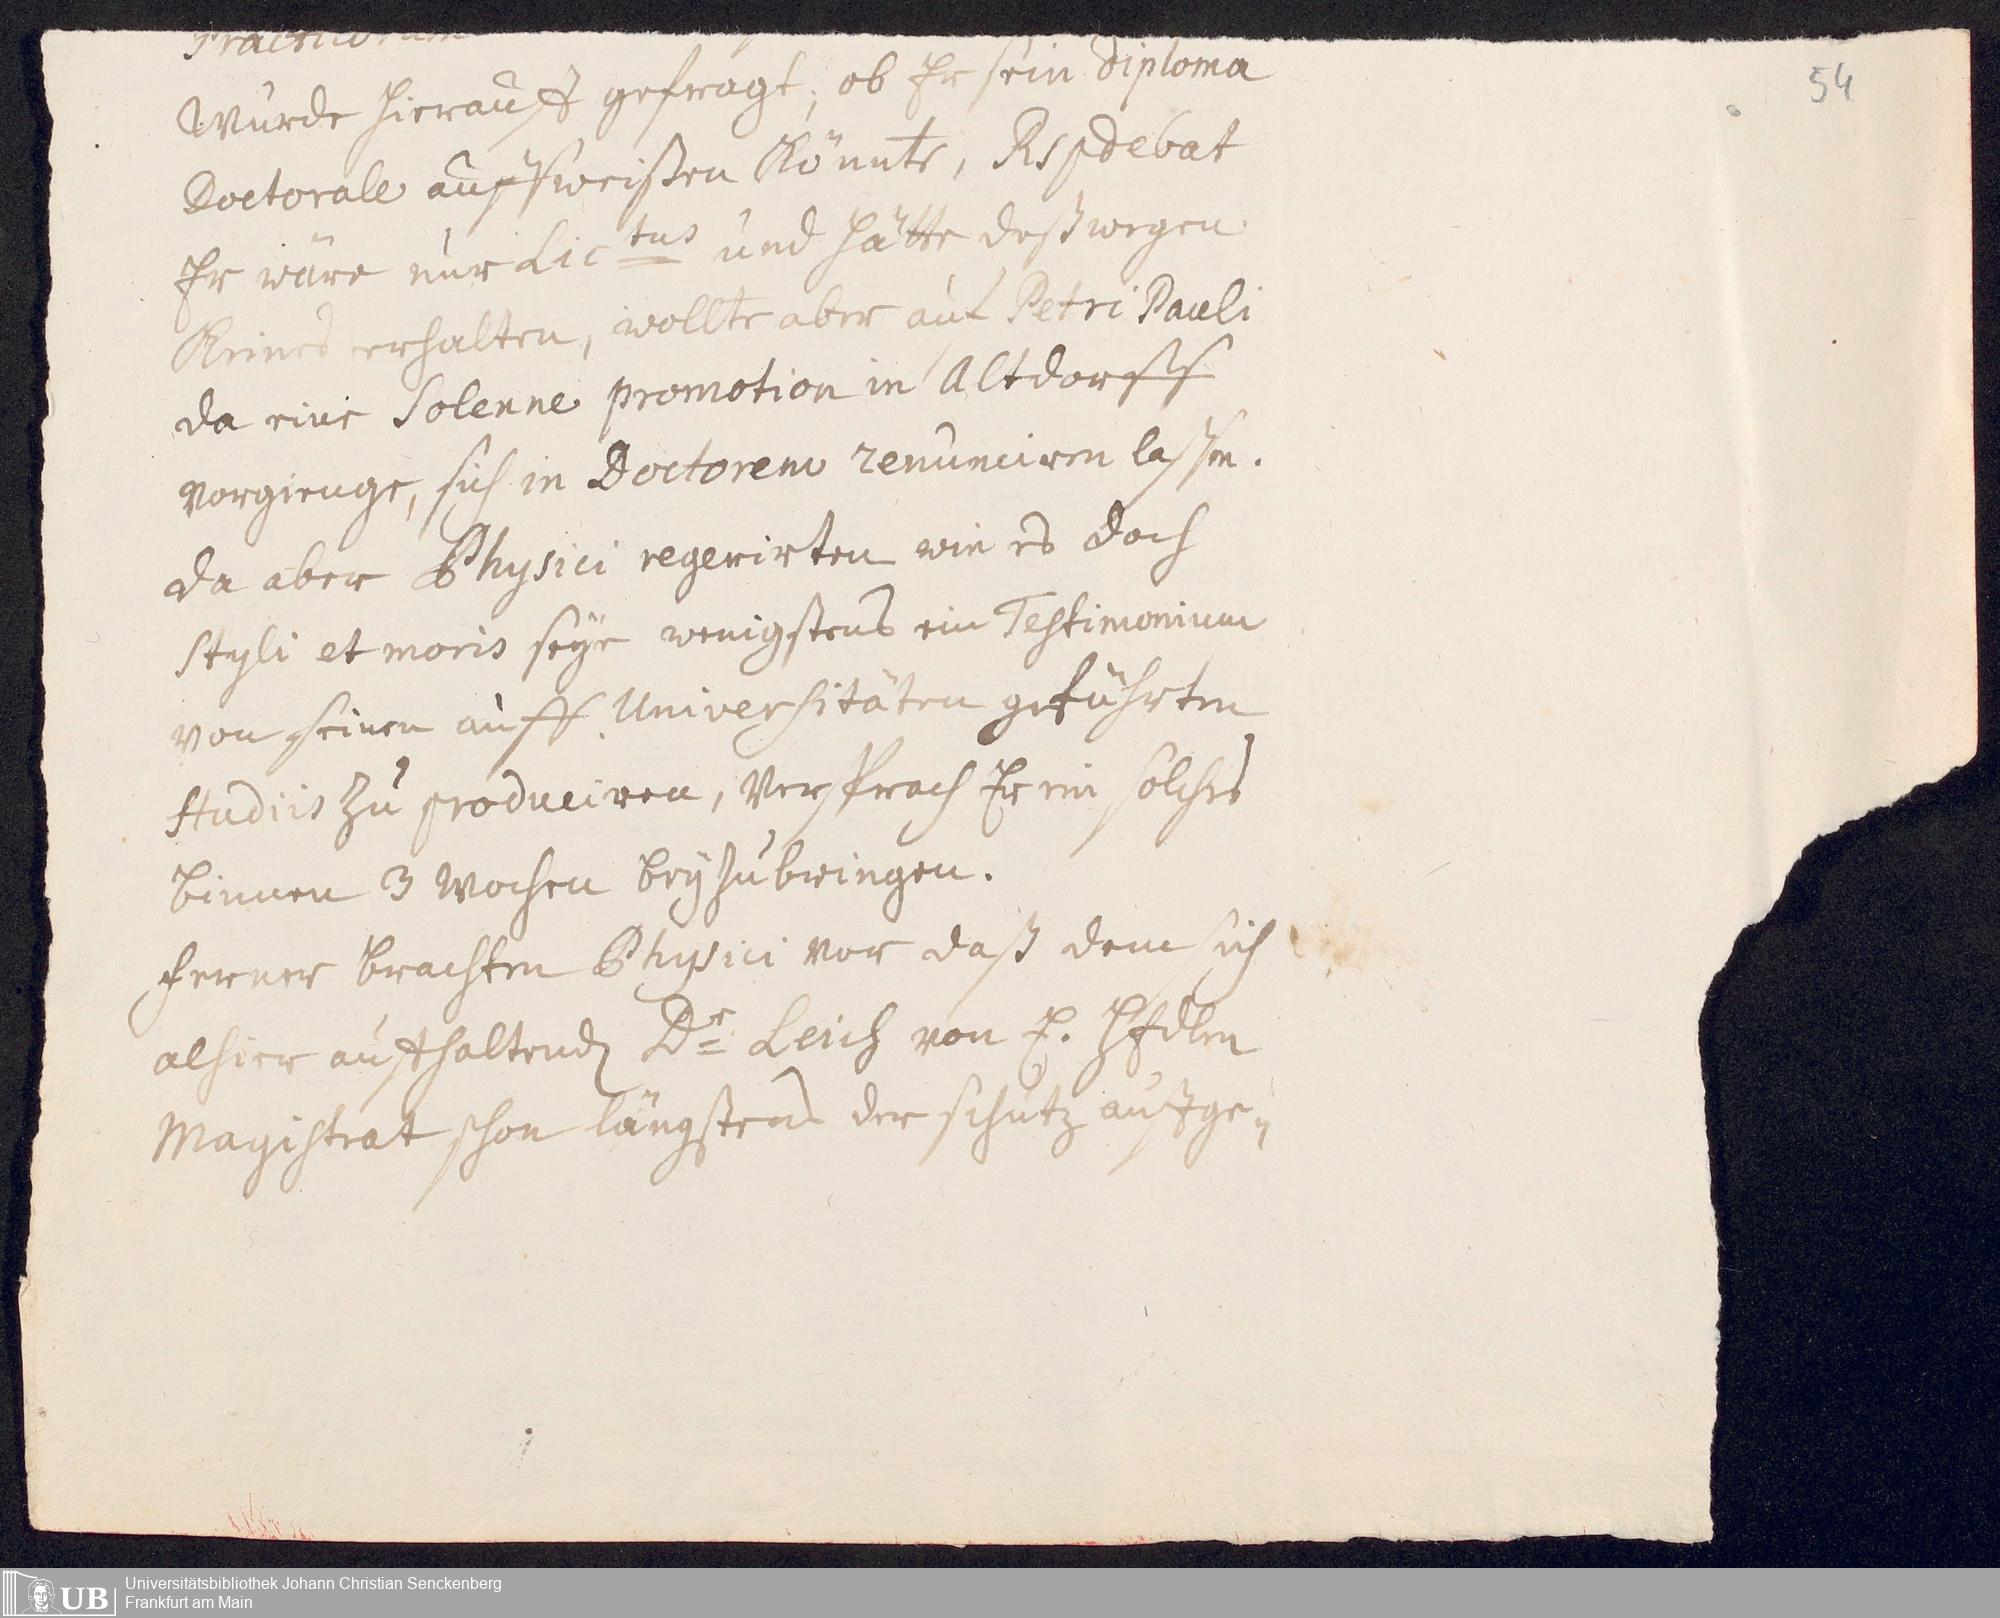 54
Wurde hierauff gefragt, ob Er sein Diploma
Doctorale auffweißen könnte, Rspdebat
Er wäre nur Lic tus und hätte deßwegen
Keines erhalten, wollte aber auf Petri Pauli
da eine Solenne promotion in Altdorff
vorgienge, sich in Doctorem renunciren lassen.
da aber Physici regerirten wie es doch
styli et moris seÿe wenigstens ein Testimonium
von seinen auff Universitäten geführten
studiis zu produciren, versprach Er ein solches
binnen 3 Wochen beÿzubringen.
ferner brachten Physici vor daß dem sich
alhier auffhaltend Dr Leich von E.
Magistrat schon längstens der schutz auffge„
Universitätsbibliothek Johann Christian Senckenberg
Frankfurt am Main
UB